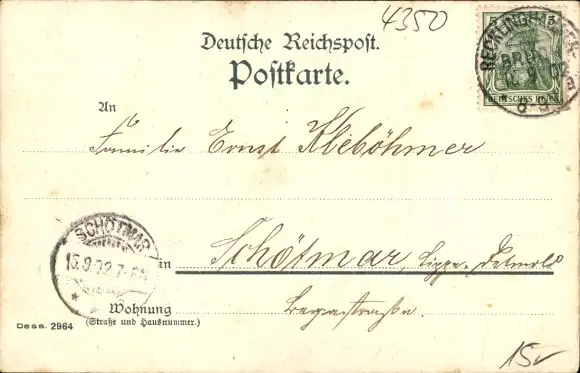 4350
Deutsche Reichspost.
Postkarte.
RECKLINGHAUSEN
BRUCH
DEUTSCHES REICH
8-9
An
Familie Ernst Kleböhmer
SCHÖTMAR
15.9.02.7-8N
in Schötmar, Lippe-Detmold
Wohnung
(Straße und Hausnummer.)
Begastraße.
Dess. 2964
15,-